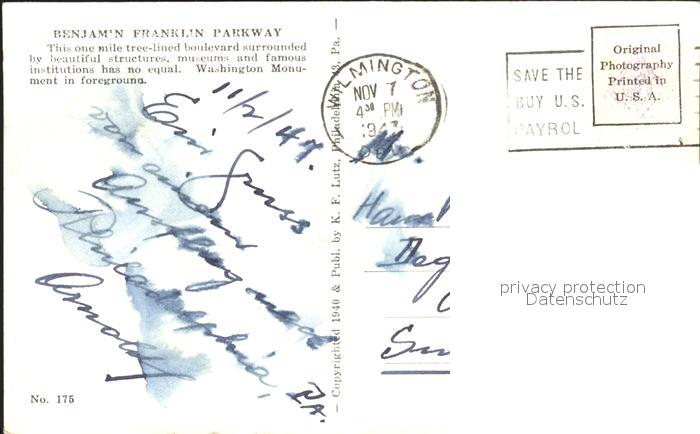 BENJAM'N FRANKLIN PARKWAY
This one mile tree-lined boulevard surrounded
by beautiful structures, museums and famous
institutions has no equal. Washington Monu-
ment in foreground.
11/2/47.
Ein Gruss
von einem
Ausflug nach
Philadelphia,
Pa.
Arnold
No. 175
— Copyrighted 1940 & Publ. by K. F. Lutz, Philadelphia 43, Pa. —
WILMINGTON
NOV 7
4 30 PM
1947
DEL.
SAVE THE
BUY U.S.
PAYROL
Original
Photography
Printed in
U. S. A.
privacy protection
Datenschutz